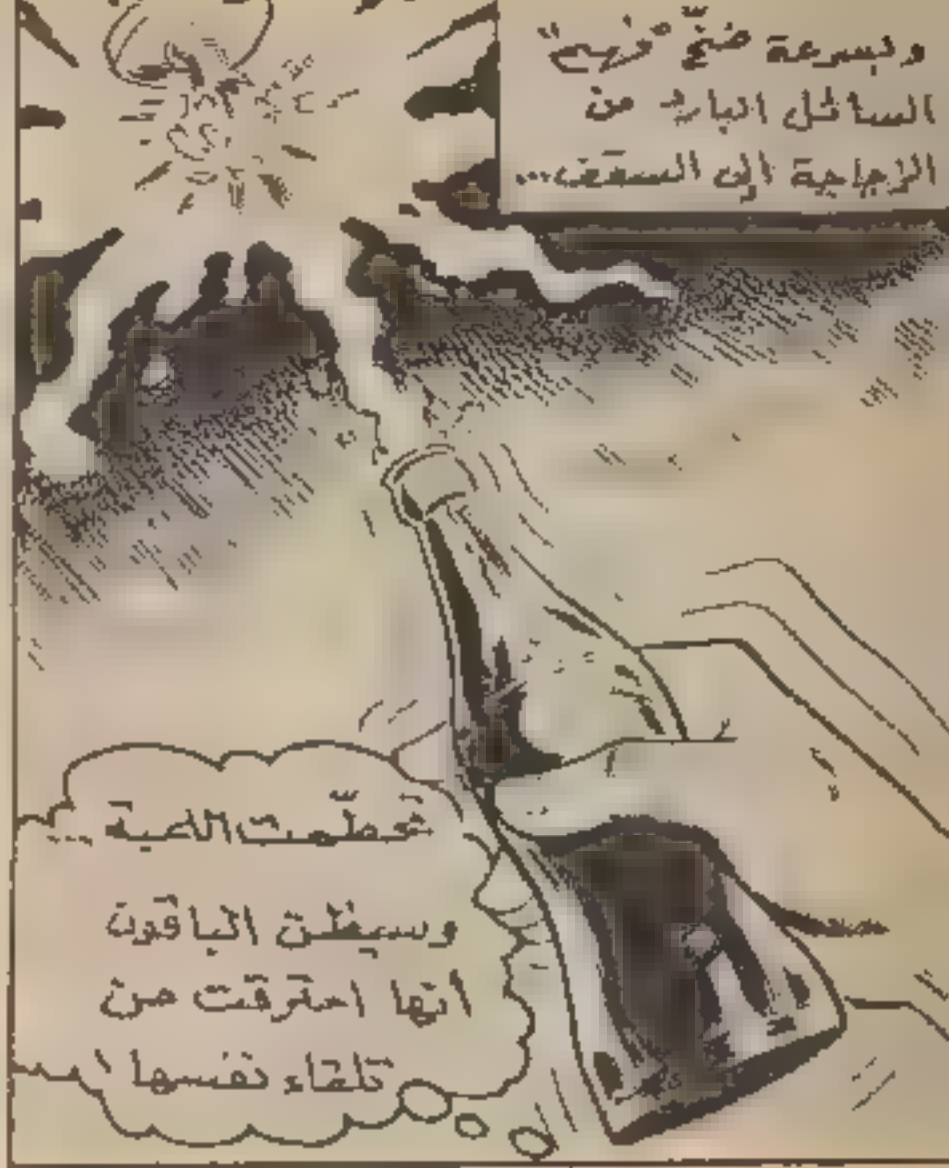 وبسرعة ضخّ "فهيم"
السائل البارد من
الزجاجة الى السقف...
تحطّمت اللمبة ...
وسيظن الباقون
أنها احترقت من
تلقاء نفسها !